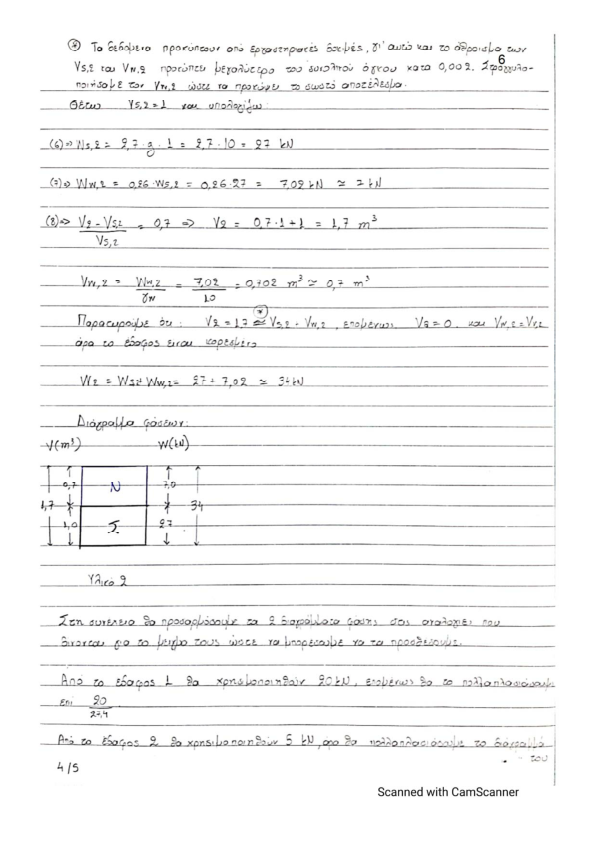 (*) Τα δεδομένα προκύπτουν από εργαστηριακές δοκιμές, γι' αυτό και το άθροισμα των
6
Vs,2 και Vw,2 προκύπτει μεγαλύτερο του συνολικού όγκου κατά 0,002. Στρογγυλο-
ποιήσαμε τον Vw,2 ώστε να προκύψει το σωστό αποτέλεσμα.
Θέτω Vs,2 = 1 και υπολογίζω:
(6)=> Ws,2 = 2,7 · g · 1 = 2,7 · 10 = 27 kN
(7)=> Ww,2 = 0,26 · Ws,2 = 0,26 · 27 = 7,02 kN ≃ 7 kN
(8)=> V2 - Vs,2 / Vs,2 = 0,7 => V2 = 0,7 · 1 + 1 = 1,7 m³
Vw,2 = Ww,2 / γw = 7,02 / 10 = 0,702 m³ ≃ 0,7 m³
(*)
Παρατηρούμε ότι: V2 = 1,7 ≃ Vs,2 + Vw,2, επομένως Va = 0 και Vw,2 = Vv,2
άρα το έδαφος είναι κορεσμένο
W2 = Ws,2 + Ww,2 = 27 + 7,02 ≃ 34 kN
Διάγραμμα φάσεων:
V(m³) W(kN)
0,7 N 7,0
1,7 34
1,0 Σ. 27
Υλικό 2
Στη συνέχεια θα προσαρμόσουμε τα 2 διαγράμματα φάσης στις αναλογίες που
δίνονται για το μείγμα τους ώστε να μπορέσουμε να τα προσθέσουμε.
Από το έδαφος 1 θα χρησιμοποιηθούν 20 kN, επομένως θα το πολλαπλασιάσουμε
επί 20 / 27,4
Από το έδαφος 2 θα χρησιμοποιηθούν 5 kN, άρα θα πολλαπλασιάσουμε το διάγραμμά
του
4/5
Scanned with CamScanner